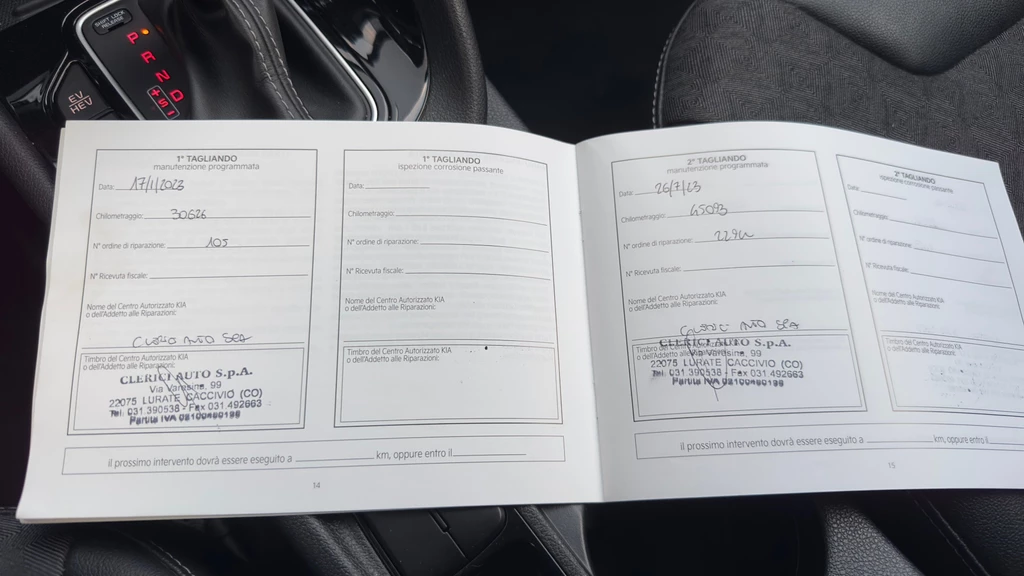 SHIFT LOCK
RELEASE
P
R
N
D
+
S
-
EV
HEV
1° TAGLIANDO
manutenzione programmata
Data: 17/1/2023
Chilometraggio: 30626
N° ordine di riparazione: 105
N° Ricevuta fiscale:
Nome del Centro Autorizzato KIA
o dell'Addetto alle Riparazioni:
AUTO SPA
Timbro del Centro Autorizzato KIA
o dell'Addetto alle Riparazioni:
CLERICI AUTO S.p.A.
Via Varesina, 99
22075 LURATE CACCIVIO (CO)
Tel. 031.390538 - Fax 031 492663
Partita IVA
1° TAGLIANDO
ispezione corrosione passante
Data:
Chilometraggio:
N° ordine di riparazione:
N° Ricevuta fiscale:
Nome del Centro Autorizzato KIA
o dell'Addetto alle Riparazioni:
Timbro del Centro Autorizzato KIA
o dell'Addetto alle Riparazioni:
il prossimo intervento dovrà essere eseguito a km, oppure entro il
14
2° TAGLIANDO
manutenzione programmata
Data: 26/7/23
Chilometraggio: 45093
N° ordine di riparazione:
N° Ricevuta fiscale:
Nome del Centro Autorizzato KIA
o dell'Addetto alle Riparazioni:
AUTO SPA
Timbro del Centro Autorizzato KIA
o dell'Addetto alle Riparazioni:
CLERICI AUTO S.p.A.
Via Varesina, 99
22075 LURATE CACCIVIO (CO)
Tel. 031.390538 - Fax 031 492663
Partita IVA
2° TAGLIANDO
ispezione corrosione passante
Data:
Chilometraggio:
N° ordine di riparazione:
N° Ricevuta fiscale:
Nome del Centro Autorizzato KIA
o dell'Addetto alle Riparazioni:
Timbro del Centro Autorizzato KIA
o dell'Addetto alle Riparazioni:
il prossimo intervento dovrà essere eseguito a km, oppure entro il
15